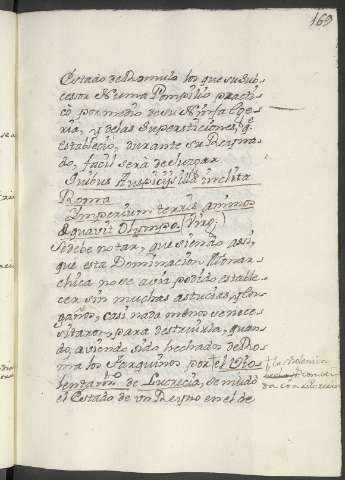 169
Estado de Romulo los que su sub-
cessor Numa Pompilio practi-
cò por medio de su Ninfa Ege-
ria, y de las Supersticiones, q.
estableciò, durante su Reyna-
do, facil serà de Juzgar
Inclita
Roma
Imperium terris, animos
Olympo. (Virg.)
Se debe notar, que siendo assi,
que esta Dominacion Monar-
chica no se avia podido estable-
cer sin muchas astucias, y en-
gaños, casi nada menos se neces-
sitaron, para destruirla, quan-
do, aviendo sido hechados de Ro-
ma los Tarquinos por el Vio-
lentam.to de Lucrecia, se mudò
el Estado de un Reyno en el de
la violencia